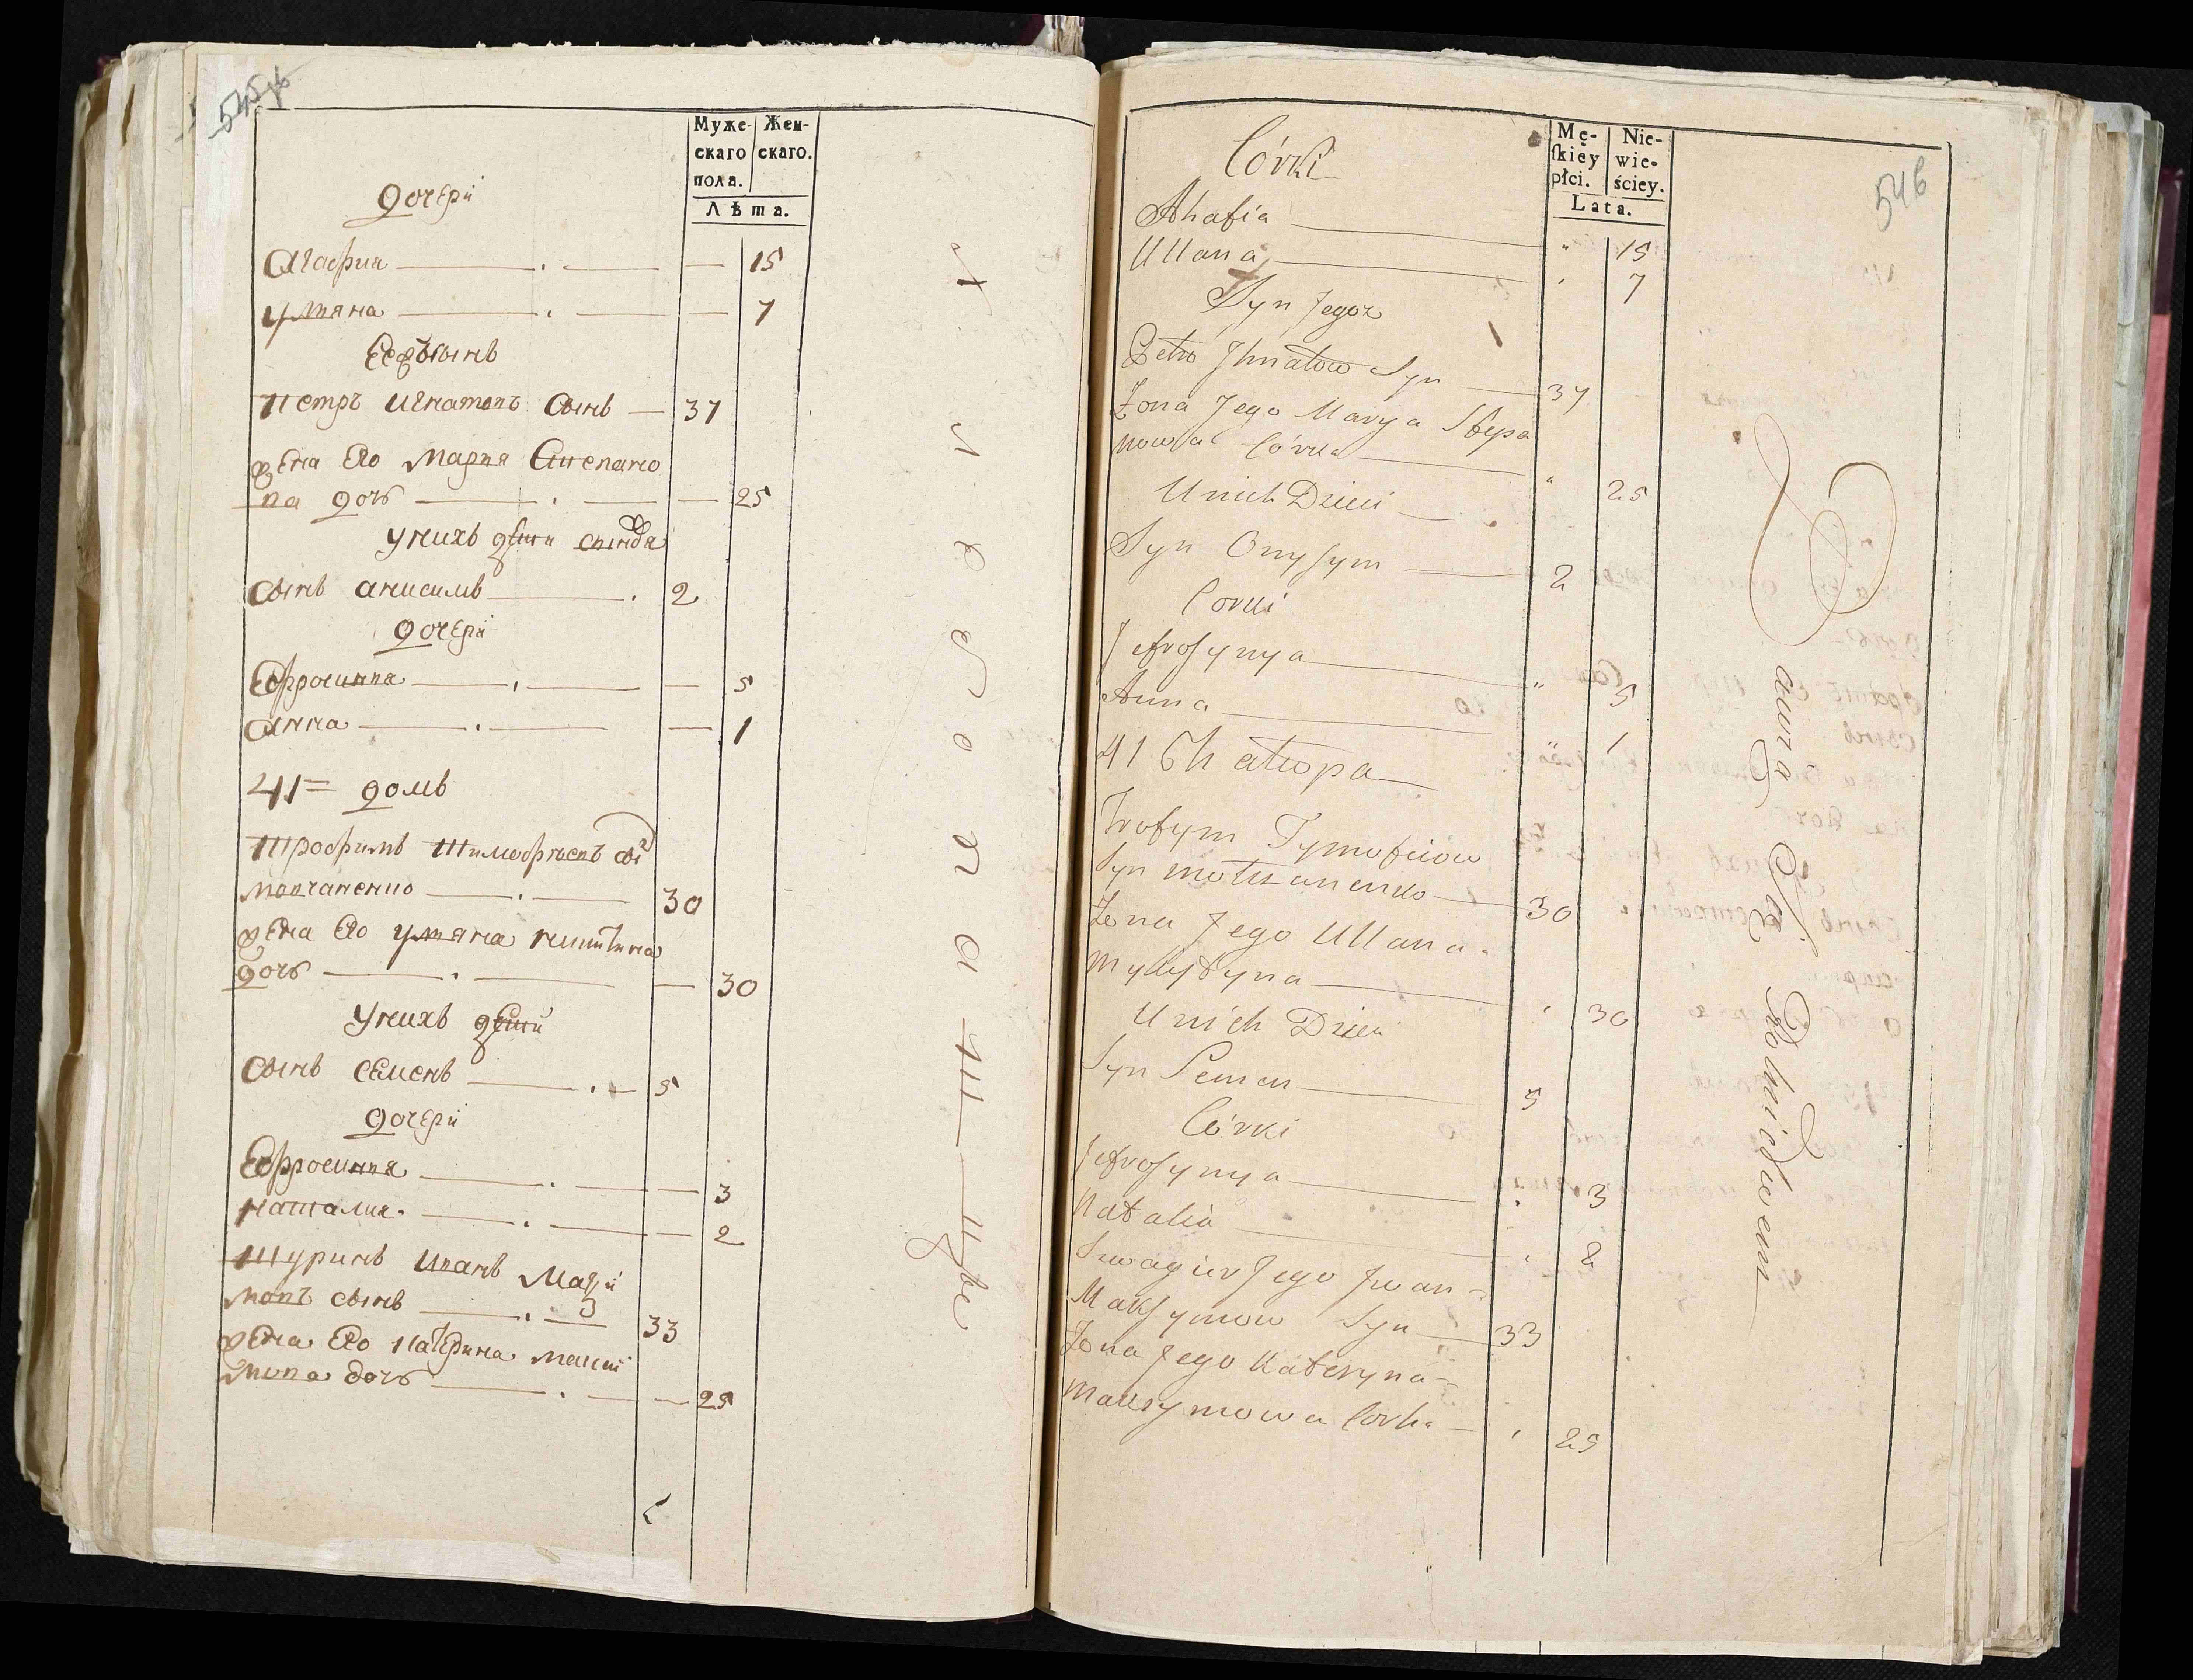 545об
Муже- Жен-
скаго скаго.
пола.
Лѣта.
дочери
Агафия — 15
улияна — 7
Его сынъ
Петръ Игнатовъ сынъ — 37
жена Его Мария Степано
ва дочь — 25
у нихъ дети
сынъ анисимъ — 2
дочери
Ефросиния — 5
анна — 1
41= домъ
Трофимъ Тимофѣевъ сы
Мовчаненко — 30
жена Его улияна Микитина
дочь — 30
у нихъ дети
сынъ семенъ — 5
дочери
Ефросиния — 3
Наталия — 2
Шуринъ Иванъ Макси
мовъ сынъ — 33
жена Его Катерина Макси
мова дочь — 25
546
Mę- Nie-
skiéy wie-
płci. ściey.
Lata.
Córki
Ahafia — " 15
Ullana — " 7
Syn Jegoż
Petro Jhnatow Syn — 37
Żona Jego Marya Stepa
nowa Córka — " 25
U nich Dzieci
Syn Onysym — 2
Corki
Jefrosynya — " 5
Anna — " 1
41 Chatupa
Trofym Tymofiiow
Syn Motczanenko — 30
Żona Jego Ullana
Mykytyna — " 30
U nich Dzieci
Syn Semen — 5
Córki
Jefrosynya — " 3
Natalia — " 2
Szwagier Jego Jwan =
Maksymow Syn — 33
Żona Jego Kateryna =
Maksymowa Corka — " 25